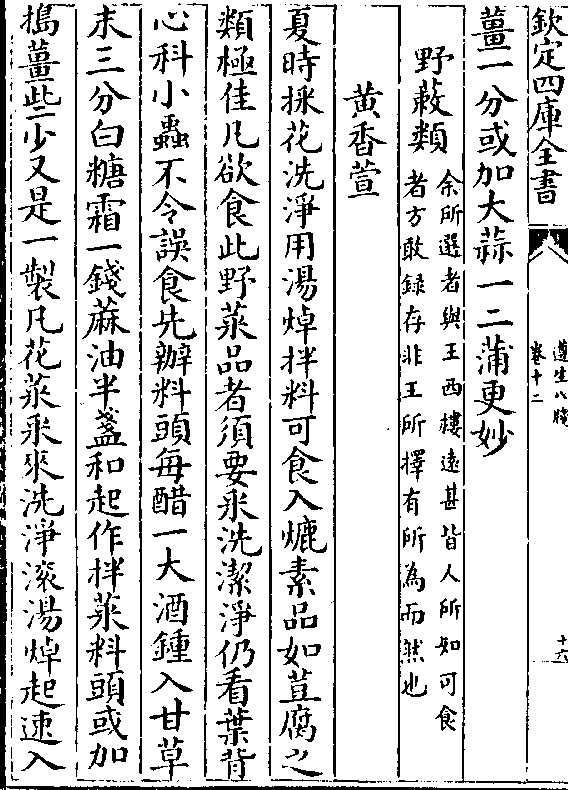 欽定四庫全書
遵生八牋
卷十二
十六
薑一分或加大蒜一二蒲更妙
野蔌類
余所選者與王西樓遠甚皆人所知可食
者方敢録存非王所擇有所為而然也
黄香萱
夏時採花洗淨用湯焯拌料可食入爊素品如荳腐之
類極佳凡欲食此野菜品者須要采洗潔淨仍看葉背
心科小蟲不令誤食先辦料頭每醋一大酒鍾入甘草
末三分白糖霜一錢蔴油半盞和起作拌菜料頭或加
搗薑些少又是一製凡花菜采來洗淨滚湯焯起速入